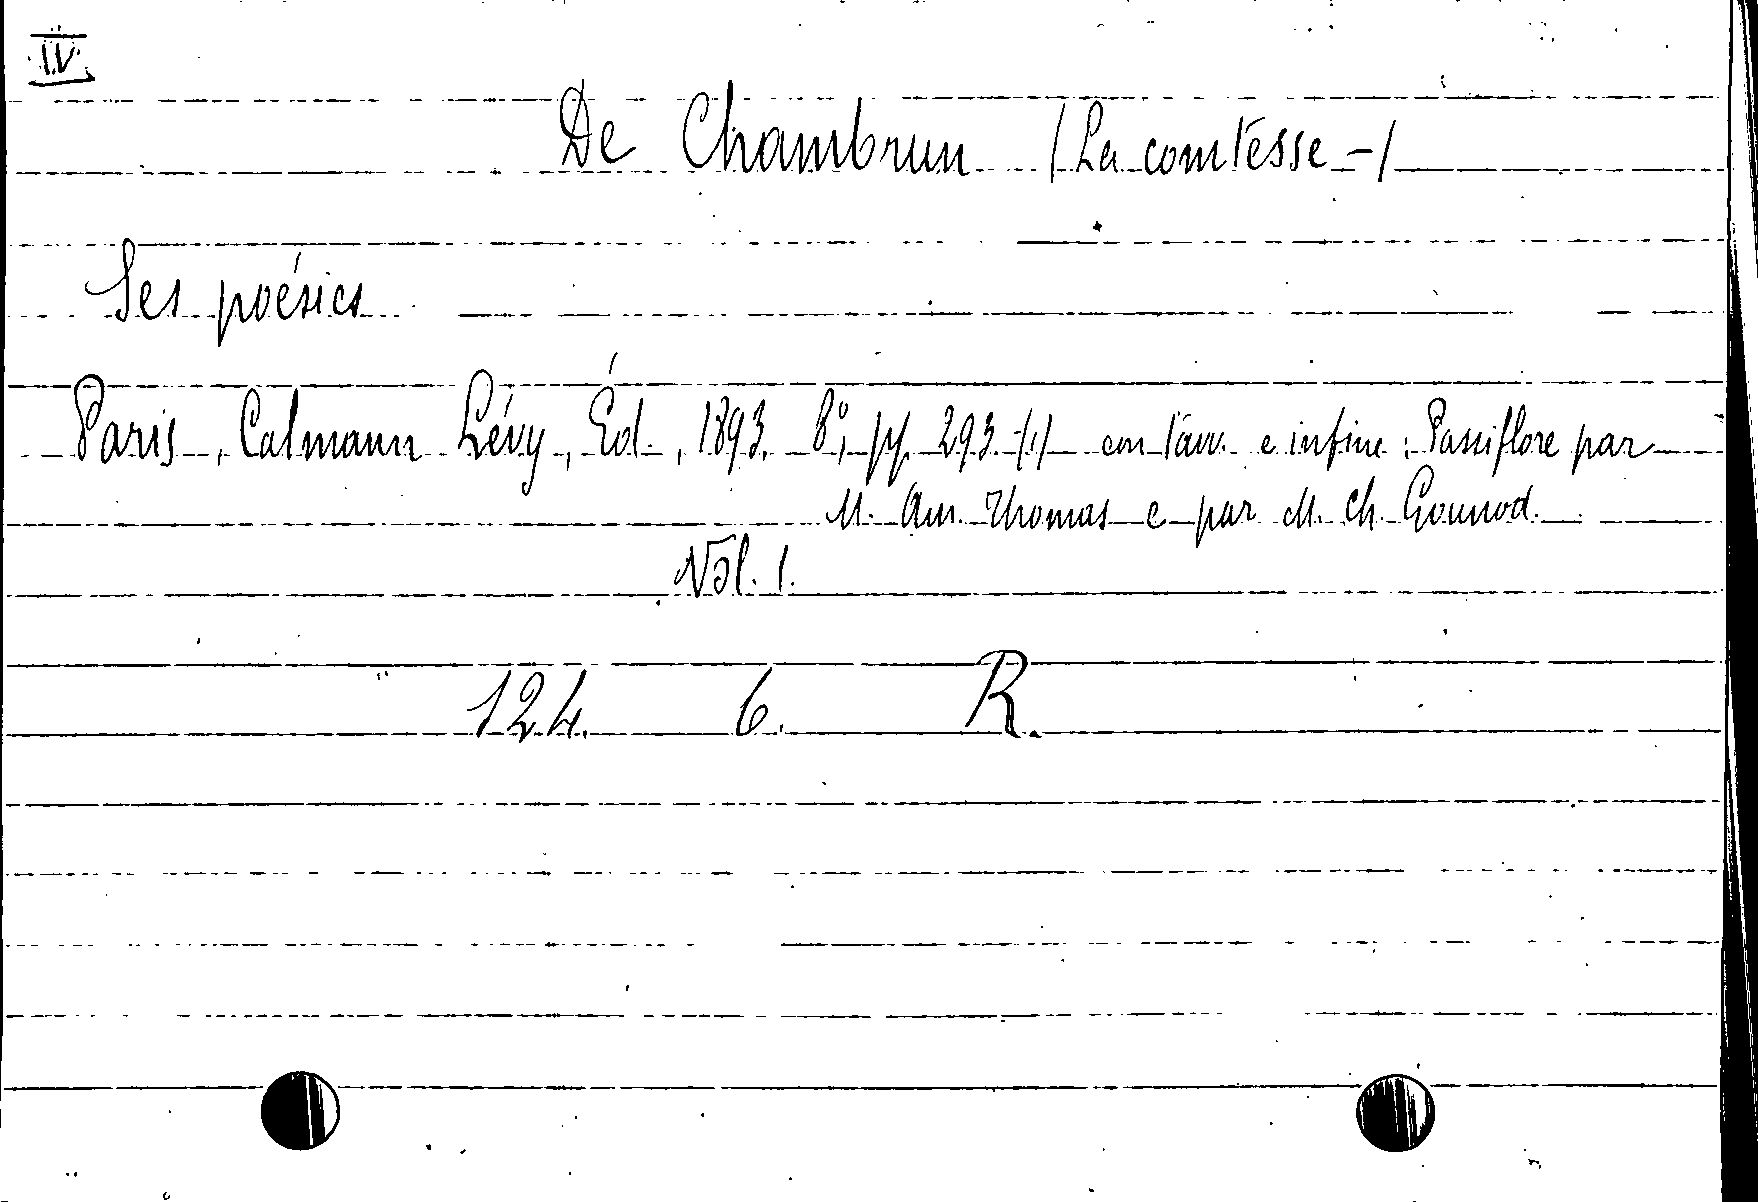 IV
De Chambrun (La comtesse -)
Ses poésies
Paris, Calmann Lévy, Éd., 1893. 8°, pp. 293-(1) con tav. e infine: Passiflore par
M. Am. Thomas e par M. Ch. Gounod.
Vol. 1.
124. 6. R.